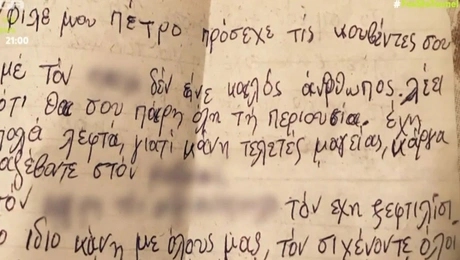 21:00
φιλε μου Πέτρο πρόσεχε τίς κουβέντες σου
μέ τόν δέν ἐνε καλός ἀνθρωπος. λέει
ότι θα σου πάρη όλη τή περιουσία. έχη
πολά λεφτα, γιατί κάνη τελετές μαγείας, κάργα
στόν
τόν τόν έχη ξεφτιλίσι.
ο ίδιο κάνη με όλους μας, τόν σιχένοντε όλοι